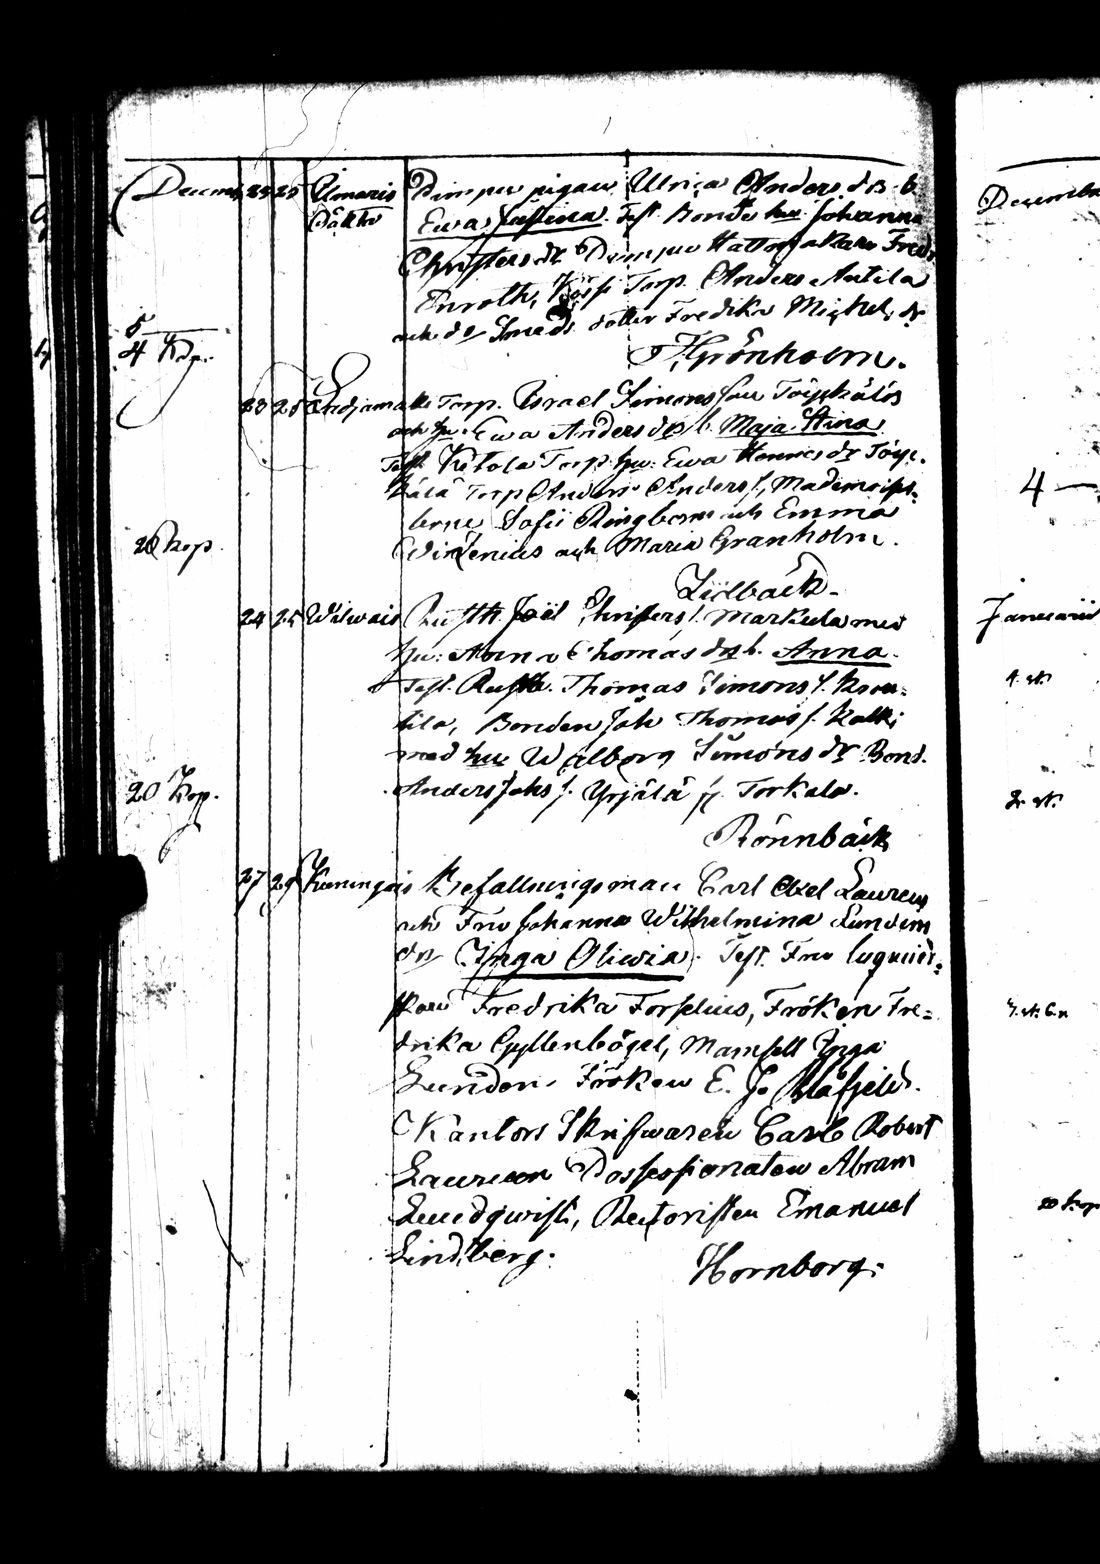 Decemb. 23 25 Umaris Dimpse pigan Ulrica Anders dr b.
Päkkö Ewa Justina. Test. Bonde hu Johanna
Christers dr Dimpse Hattmakare Fred.
Enroth, Torp. Anders Antila
och do Smeds dotter Fredika Michels dr
5
4 Kop. Grönholm.
23 25 Torp. Israel Simons son Töyrkälä
och hu. Ewa Anders dr b. Maja Stina
Test. Ketola Torp. hu. Ewa Hennes dr Töyr-
kälä Torp Anders Anders s. Mademoisel-
lerne Sofii Ringbom och Emma
20 Kop. och Maria Granholm.
Lidbäck.
24 25 Wilwais Rusth. Joel Christers s. Markula med
hu: Anna Thomas dr b. Anna.
Test. Rusth. Thomas Simons s. Kou-
tila, Bonden Joh Thomas s. Kalki
med hu Walborg Simons dr Bond.
20 Kop. Anders Johs s. Yrjälä fr. Torkala.
Rönnbäck
27 29 Kuningois Befallningsman Carl Axel Lauren
och Fru Johanna Wilhelmina Lundens
dr Inga Oliwia. Test. Fru
Fredrika Forselius, Fröken Fre-
drika Gyllenbögel, Mamsell Inga
Lunden, Fröken E. J. Blåfjeld.
Kantors Skrifwaren Carl Robert
Lauren Possessionaten Abram
Lundqwist, Emanuel
Lindberg.
Hornborg.
Decembe
4
Januarii
20 Kop